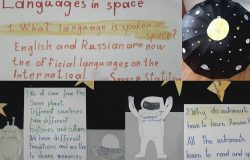 Languages in space
1. What language is spoken in
space?
English and Russian are now
the official languages on the
International Space Station
3. We all come from the
same planet.
Different countries
have different
histories and cultures
We have different
traditions and we like
to share memories
2. Why do astronauts
have to learn Russian
All the astronauts
learn to read and